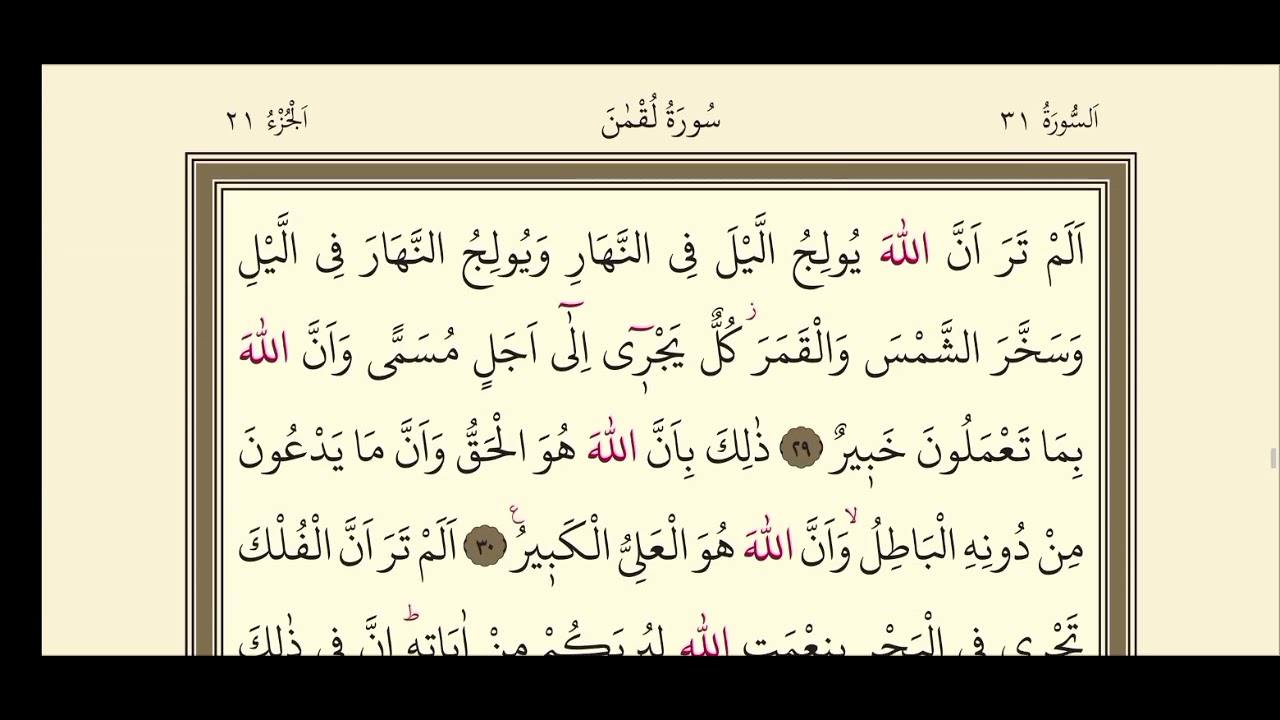 اَلسُّورَةُ ٣١ سُورَةُ لُقْمٰنَ اَلْجُزْءُ ٢١
اَلَمْ تَرَ اَنَّ اللّٰهَ يُولِجُ الَّيْلَ فِى النَّهَارِ وَيُولِجُ النَّهَارَ فِى الَّيْلِ
وَسَخَّرَ الشَّمْسَ وَالْقَمَرَ ز كُلٌّ يَجْر۪ٓى اِلٰٓى اَجَلٍ مُسَمًّى وَاَنَّ اللّٰهَ
بِمَا تَعْمَلُونَ خَب۪يرٌ ٢٩ ذٰلِكَ بِاَنَّ اللّٰهَ هُوَ الْحَقُّ وَاَنَّ مَا يَدْعُونَ
مِنْ دُونِهِ الْبَاطِلُ ۙ وَاَنَّ اللّٰهَ هُوَ الْعَلِىُّ الْكَب۪يرُ ع ٣٠ اَلَمْ تَرَ اَنَّ الْفُلْكَ
تَجْرِى فِى الْبَحْرِ بِنِعْمَتِ اللّٰهِ لِيُرِيَكُمْ مِنْ اٰيَاتِهِ ط اِنَّ فِى ذٰلِكَ